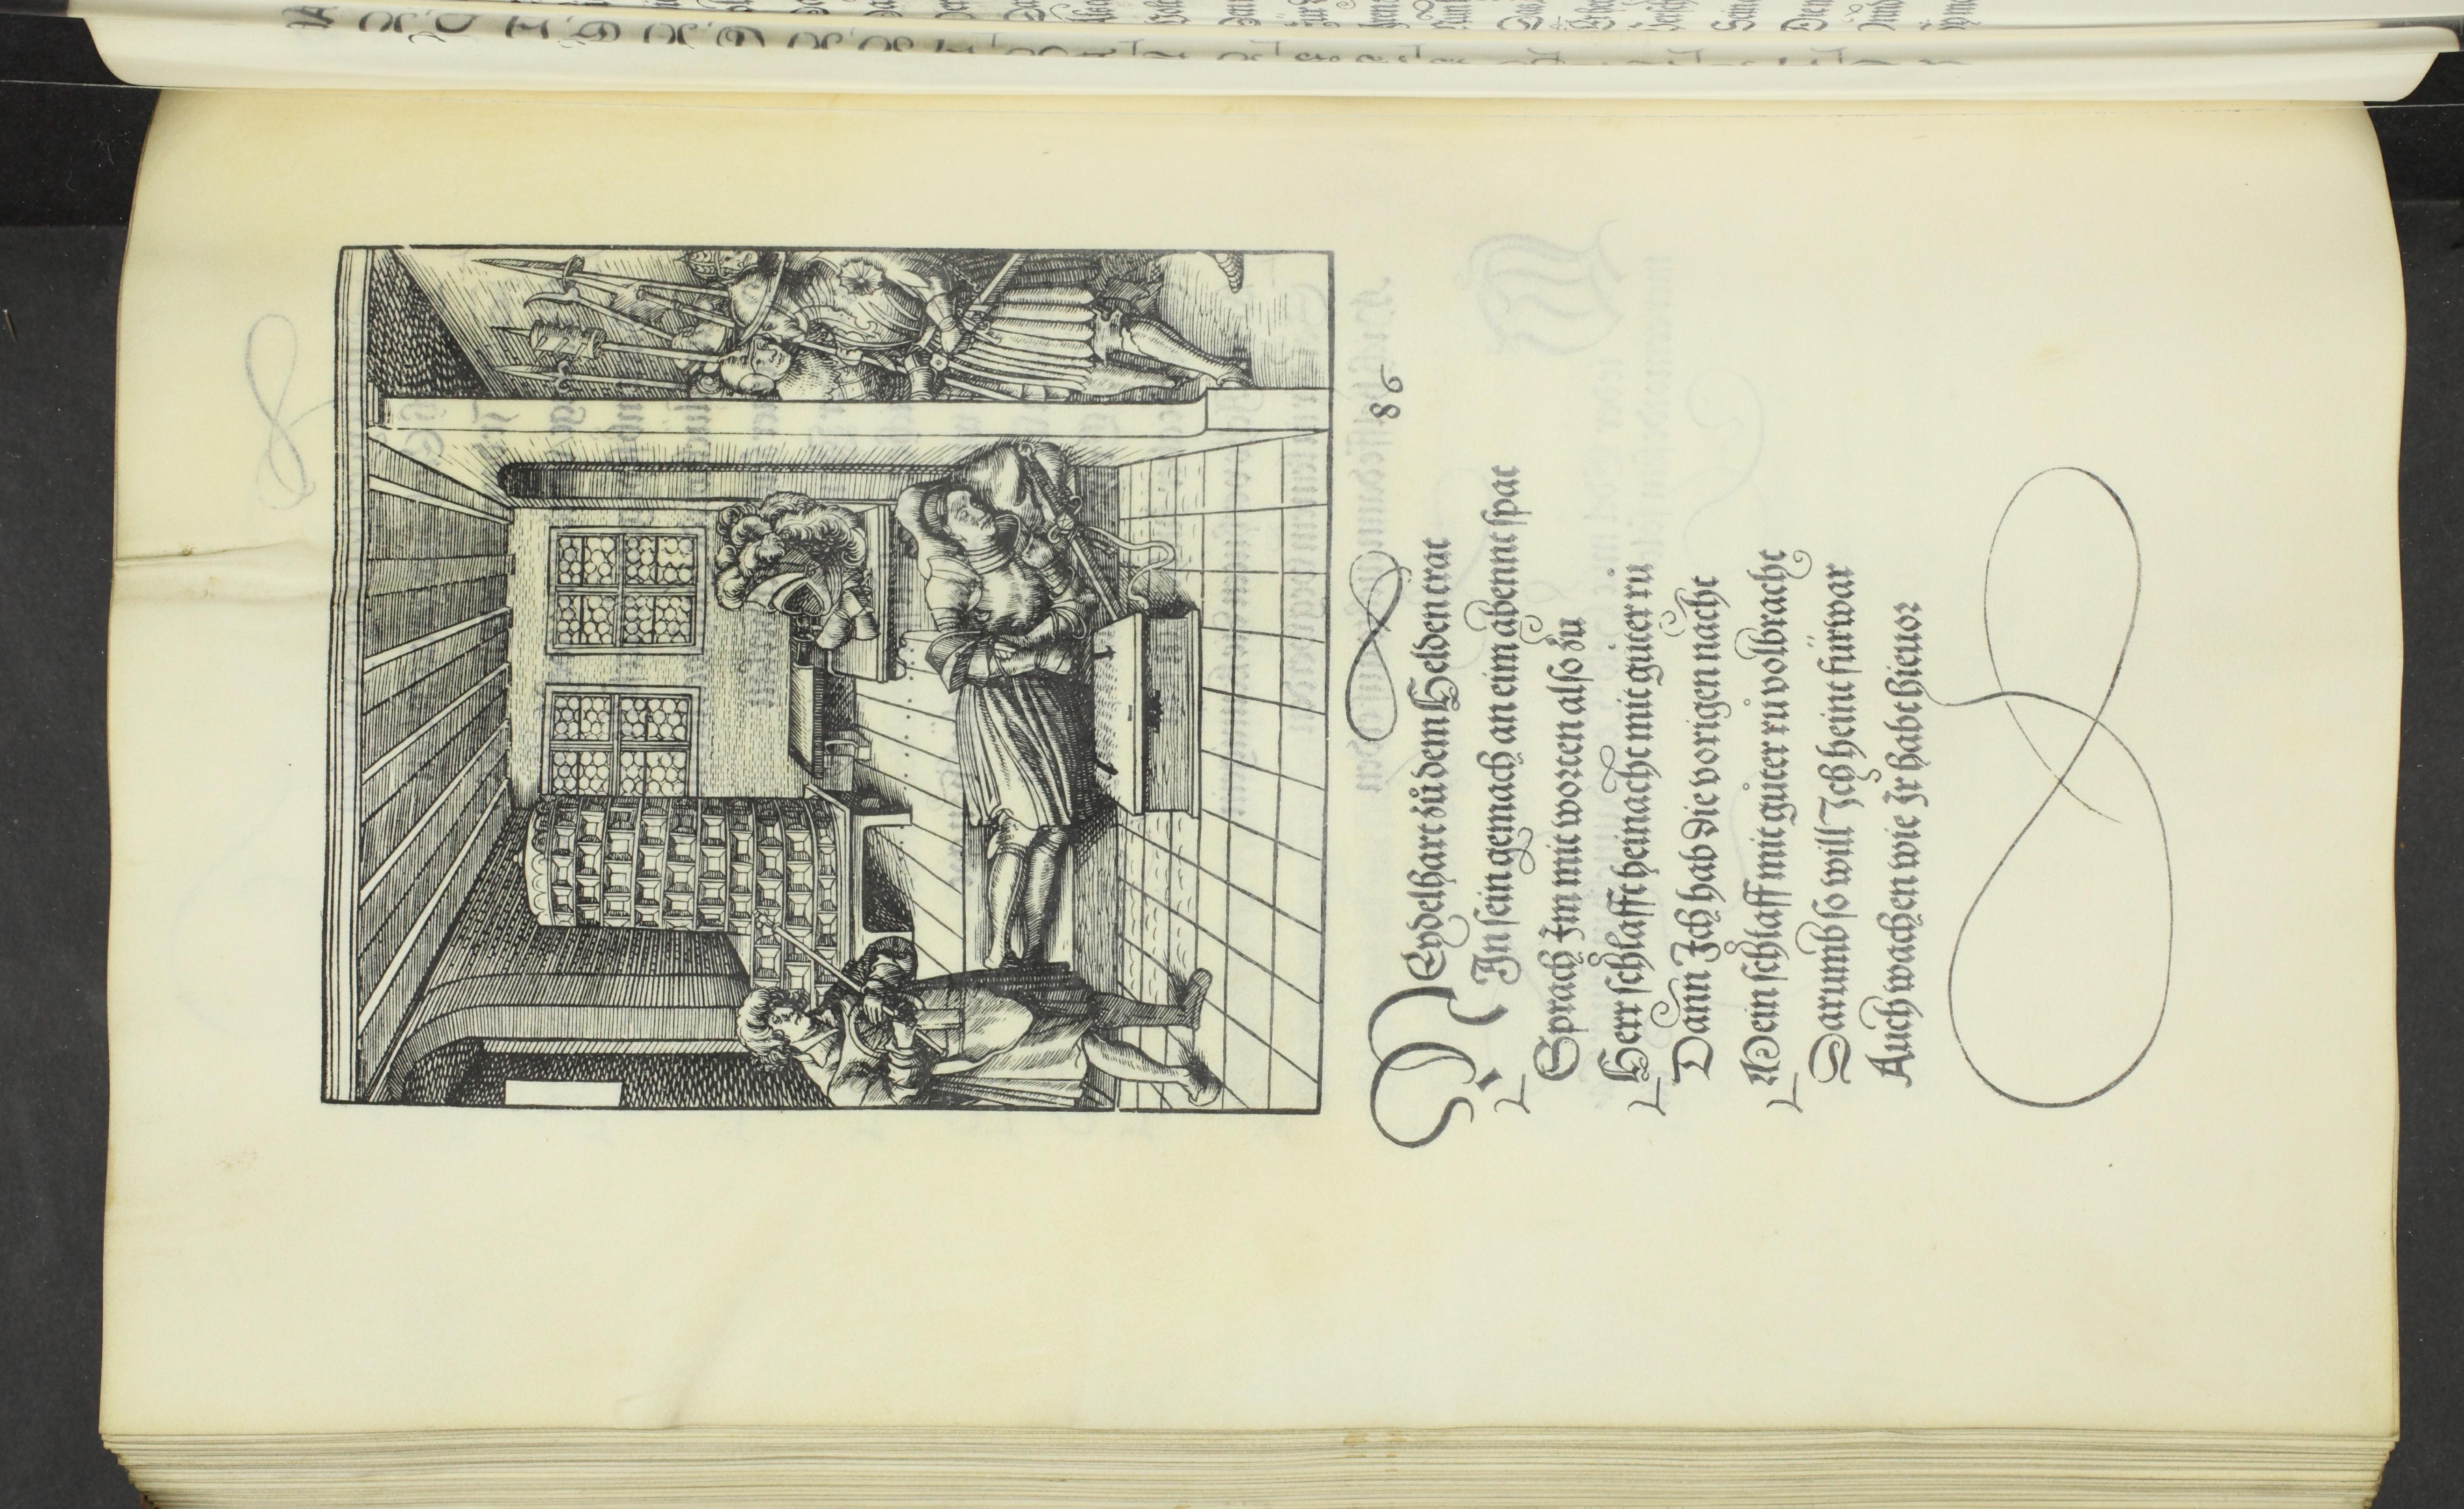 86
Neydelhart zů dem Helden trat
In sein gemach an eim abennt spat
Sprach Im mit worten also zů
Herr schlafft heinacht mit guter ru
Dann Ich hab die vorigen nacht
Mein schlaff mit gůter rů volbracht
Darumb so will Ich heint fürwar
Auch wachen wie Ir habt hieuor